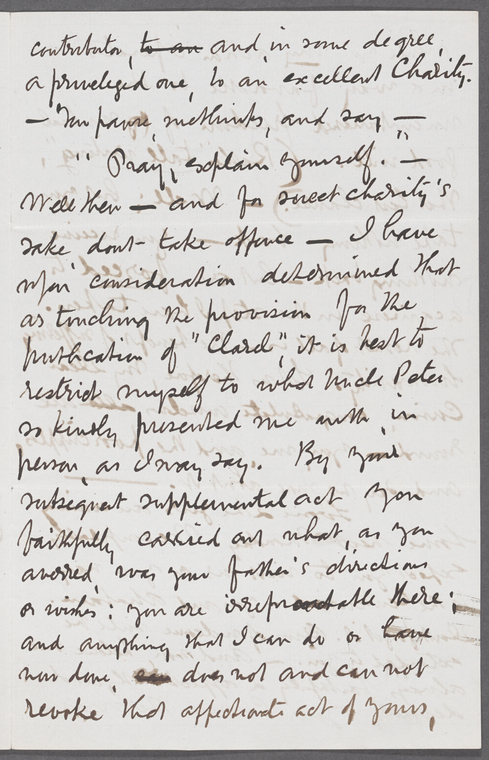 contributor, to an and, in some degree,
a priveleged one, to an excellent Charity.
— You pause, methinks, and say —
"Pray, explain yourself." —
Well then — and for sweet charity's
sake dont take offence — I have
upon consideration determined that
as touching the provision for the
publication of "Clarel", it is best to
restrict myself to what Uncle Peter
so kindly presented me with, in
person, as I may say. By your
subsequent supplemental act you
faithfully carried out what, as you
averred, was your father's directions
or wishes: you are irreproachable there;
and anything that I can do or have
now done, does not and can not
revoke that affectionate act of yours,